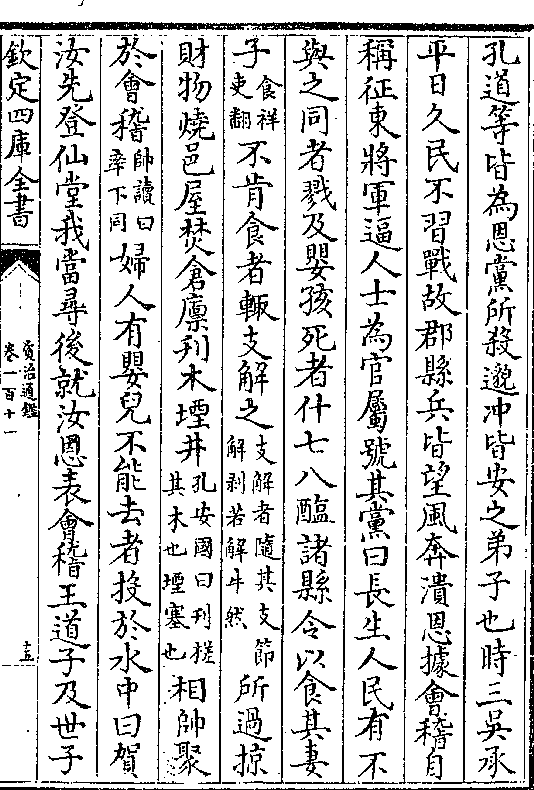 孔道等皆為恩黨所殺邈冲皆安之弟子也時三吳承
平日久民不習戰故郡縣兵皆望風奔潰恩據會稽自
稱征東將軍逼人士為官屬號其黨曰長生人民有不
與之同者戮及嬰孩死者什七八醢諸縣令以食其妻
子食祥吏翻不肯食者輒支解之支解者隨其支節解剥若解牛然所過掠
財物燒邑屋焚倉廪刋木堙井孔安國曰刋槎其木也堙塞也相帥聚
於會稽帥讀曰率下同婦人有嬰兒不能去者投於水中曰賀
汝先登仙堂我當尋後就汝恩表會稽王道子及世子
欽定四庫全書
資治通鑑
卷一百十一
十五